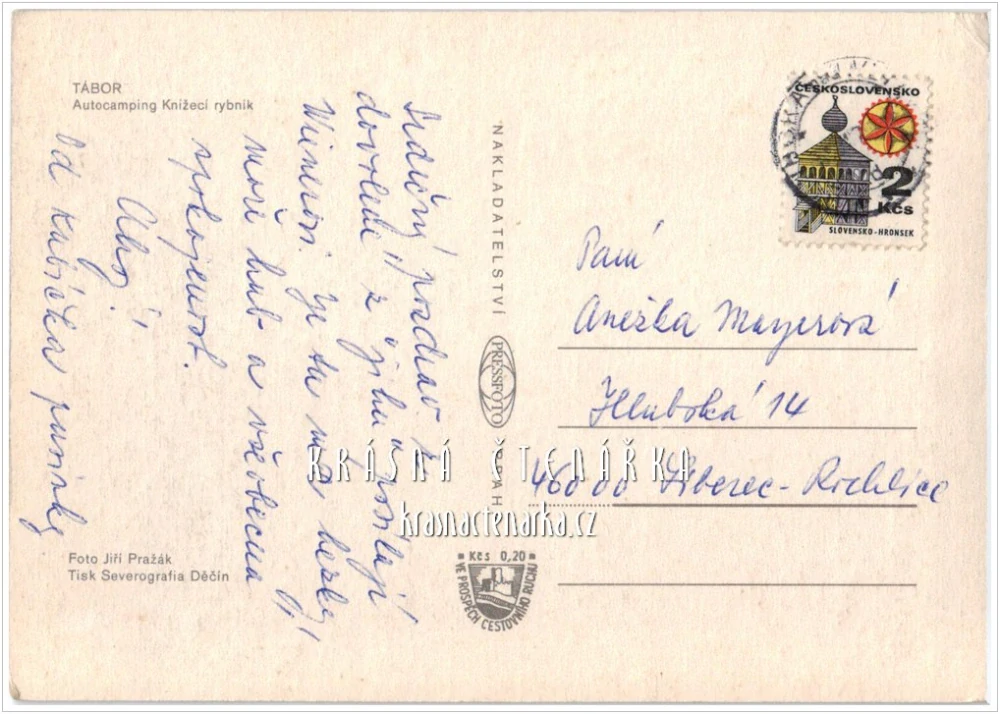 TÁBOR
Autocamping Knížecí rybník
Srdečný pozdrav z
dovolené z jihu posílají
Je tu moc hezky,
moře hub a všeobecná
spokojenost.
Ahoj!
Od
Foto Jiří Pražák
Tisk Severografia Děčín
NAKLADATELSTVÍ
PRESSFOTO
AH
Kčs 0,20
VE PROSPĚCH CESTOVNÍHO RUCHU
ČESKOSLOVENSKO
2
Kčs
SLOVENSKO-HRONSEK
Paní
Anežka Mayerová
Hluboká 14
460 00 Liberec-Rochlice
KRÁSNÁ ČTENÁŘKA
krasnactenarka.cz